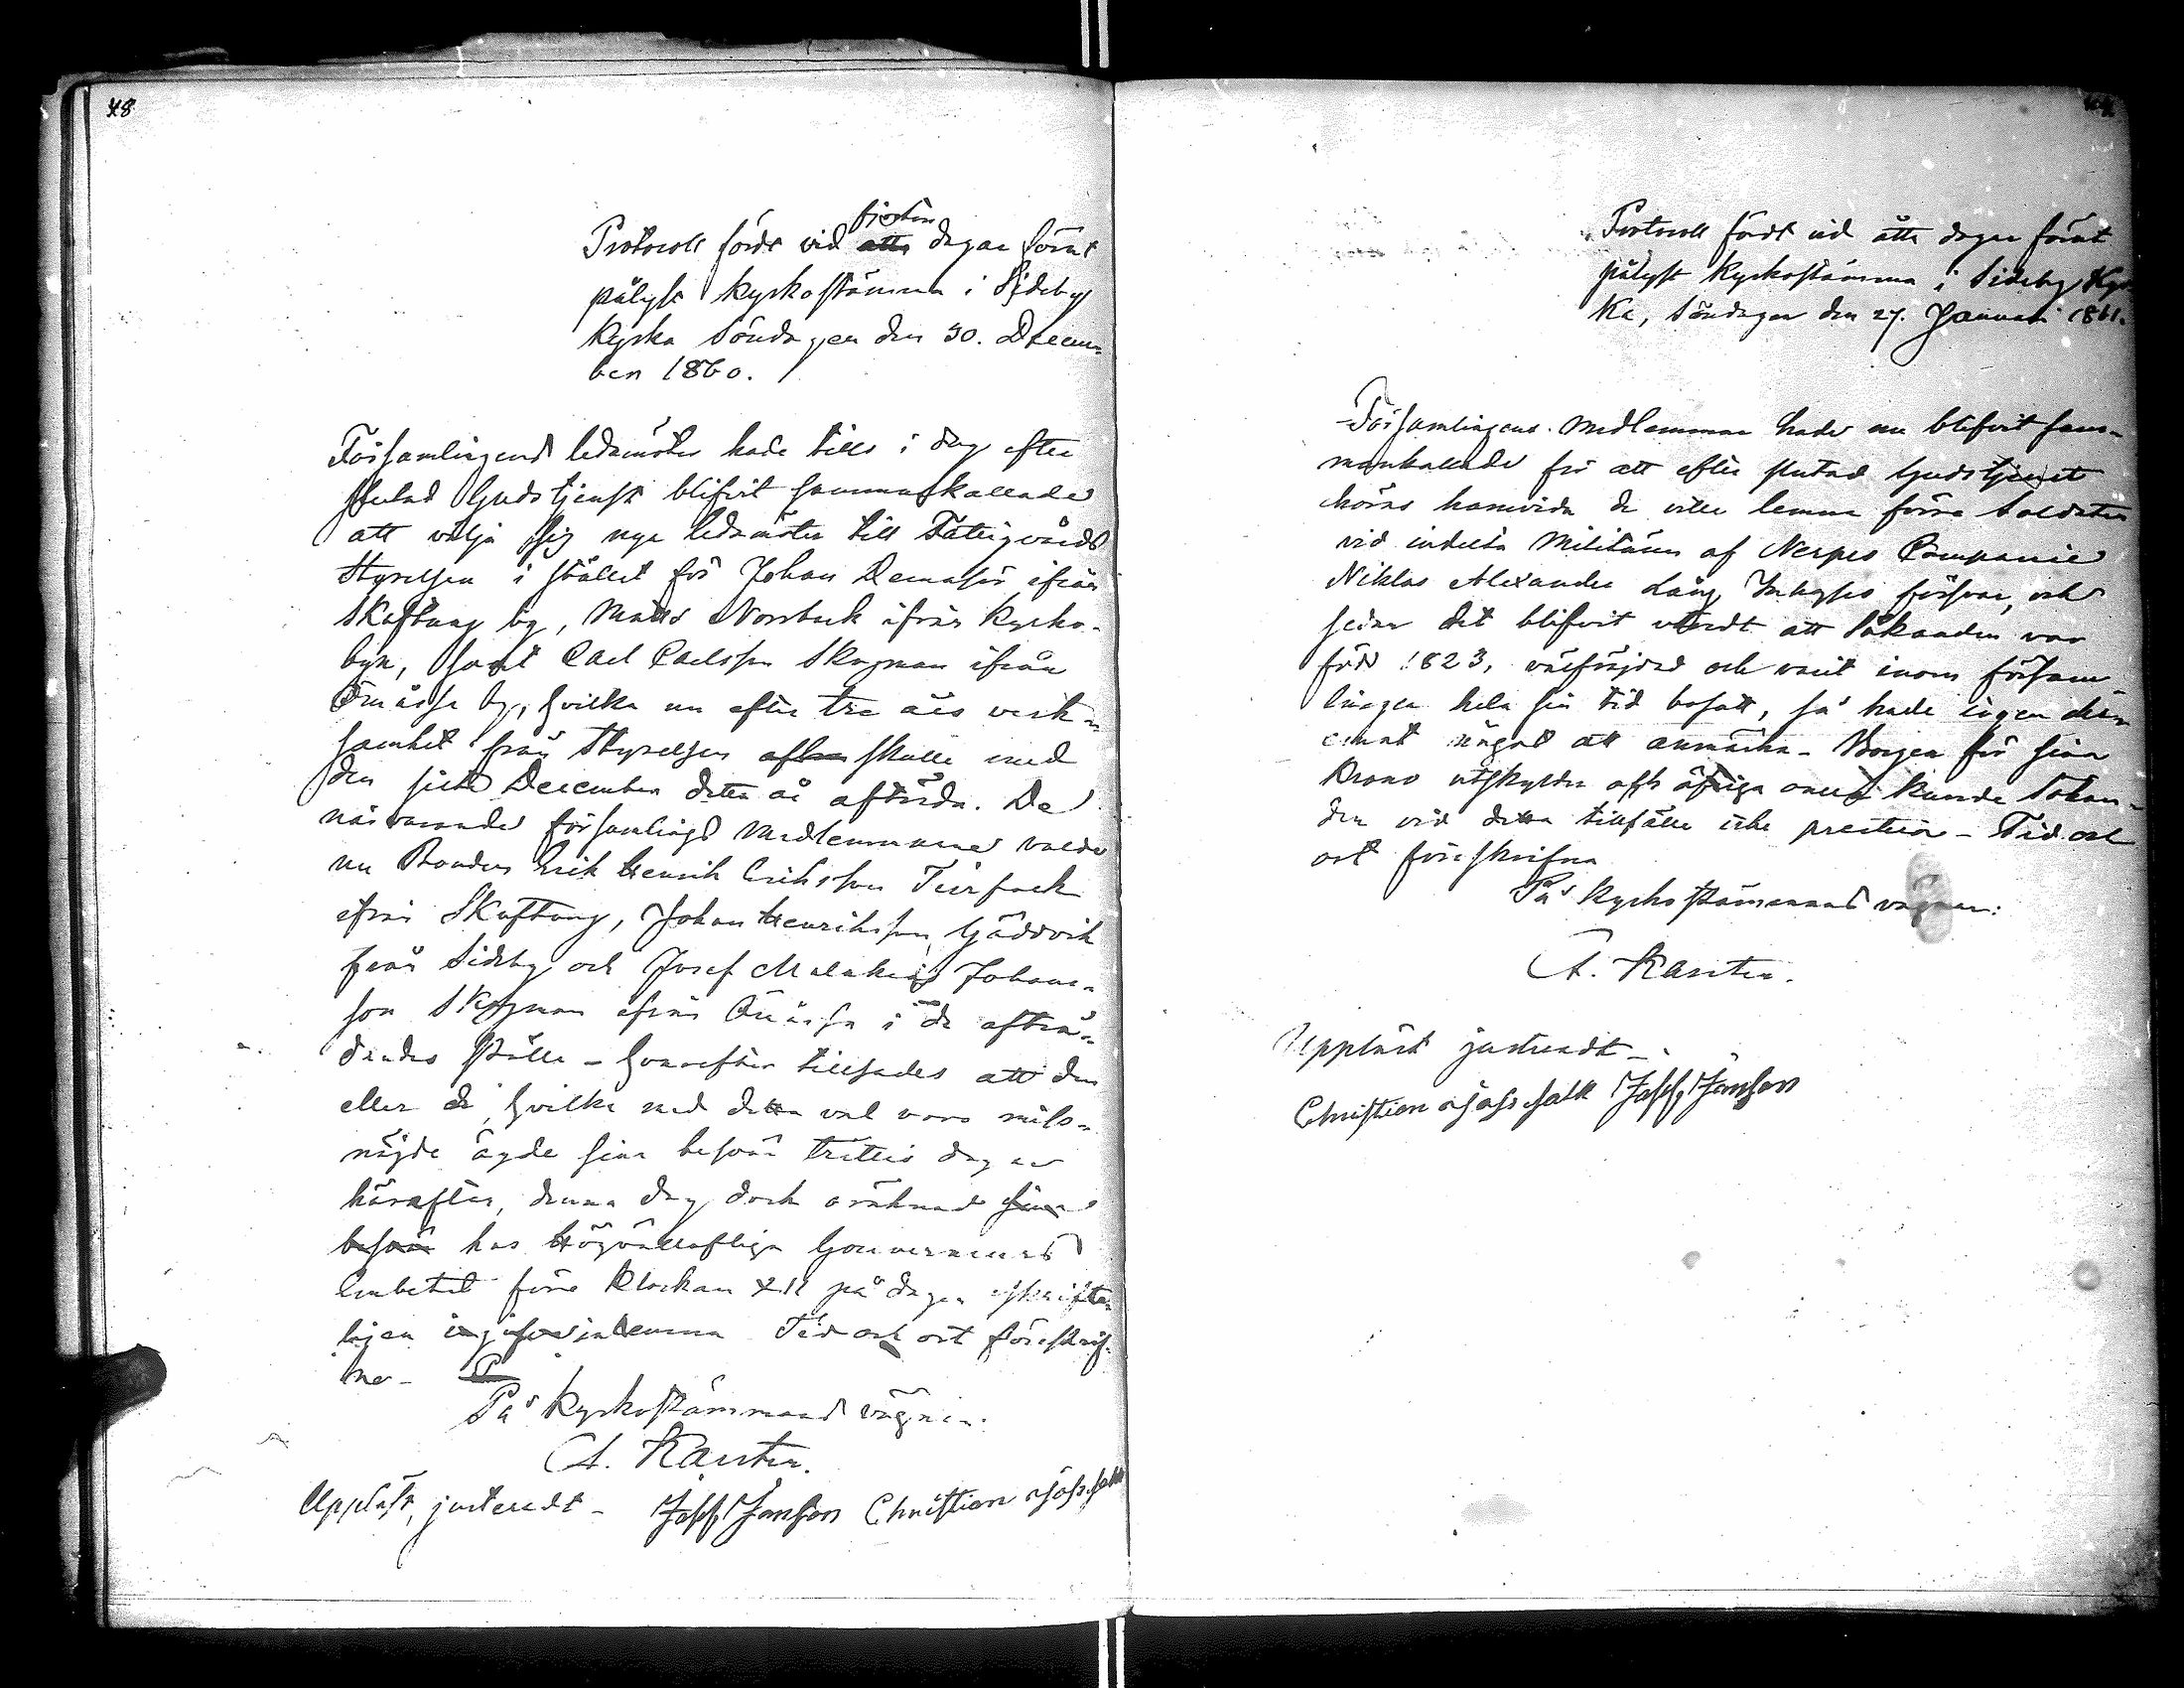 48
Protocoll fördt vid åtta fjorton dagar förut
pålyst kyrkostämma i Sideby
kyrka Söndagen den 30. Decem-
ber 1860.
Församlingens ledamöter hade tills i dag efter
slutad Gudstjenst blifvit sammankallade
att välja sig nya ledamöter till Fattigvårds
Styrelsen i stället för Johan ifrån
Skaftung by, Matts Norrback ifrån kyrko-
byn, samt Carl Carlsson Skogman ifrån
Ömossa by, hvilka nu efter tre års verk-
samhet från Styrelsen skulle med
den sista December detta år afträda. De
närvarande församlings medlemmarne valde
nu Bonden Erik Henrik Eriksson
ifrån Skaftung, Johan Henriksson Gäddvik
från Sideby och Josef Malakias Johans-
son Skogman ifrån Ömossa i de afträ-
dandes ställe – hvarefter tillsades att den
eller de, hvilka med detta val voro miss-
nöjde ägde sina besvär trettio dagar
härefter, denna dag dock oräknad sina
besvär hos Högvällofliga Gouvernements
Embetet före klockan XII på dagen skrifte-
ligen ingifva inlemna Tid och ort föreskrif-
na –
På kyrkostämmans vägnar:
A. Karsten.
Uppläst, justeradt – Josef Jansson Christian
Protocoll fördt vid åtta dagar förut
pålyst kyrkostämma i Sideby Kyr-
ka, Söndagen den 27. Januari 1861.
Församlingens medlemmar hade nu blifvit sam-
mankallade för att efter slutad Gudstjenst
höras hurvida de ville lemna förre Soldaten
vid indelta Militären af Nerpes Compagnie
Niklas Alexander Lång Inhyses försvar, och
sedan det blifvit utredt att Sökanden var
född 1823, välfrejdad och varit inom försam-
lingen hela sin tid bosatt, så hade ingen der-
emot något att anmärka – Borgen för sina
Krono utskylder och öfriga onera kunde Sökan-
den vid detta tillfälle icke prestera – Tid och
ort föreskrifna
På kyrkostämmans vägnar:
A. Karsten.
Uppläst justeradt –
Christian Josef Jansson